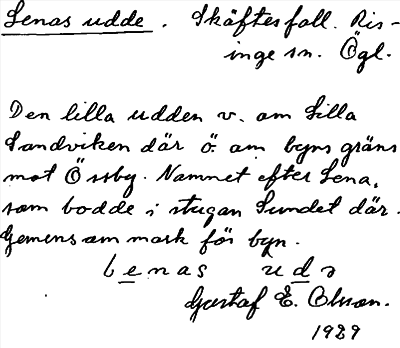 Lenas udde. Skäftesfall. Ris-
inge sn. Ögl.
Den lilla udden v. om Lilla
Sandviken där ö. om byns gräns
mot Össby. Namnet efter Lena,
som bodde i stugan Sundet där.
Gemensam mark för byn.
lenas udə
Gustaf E. Olsson.
1929